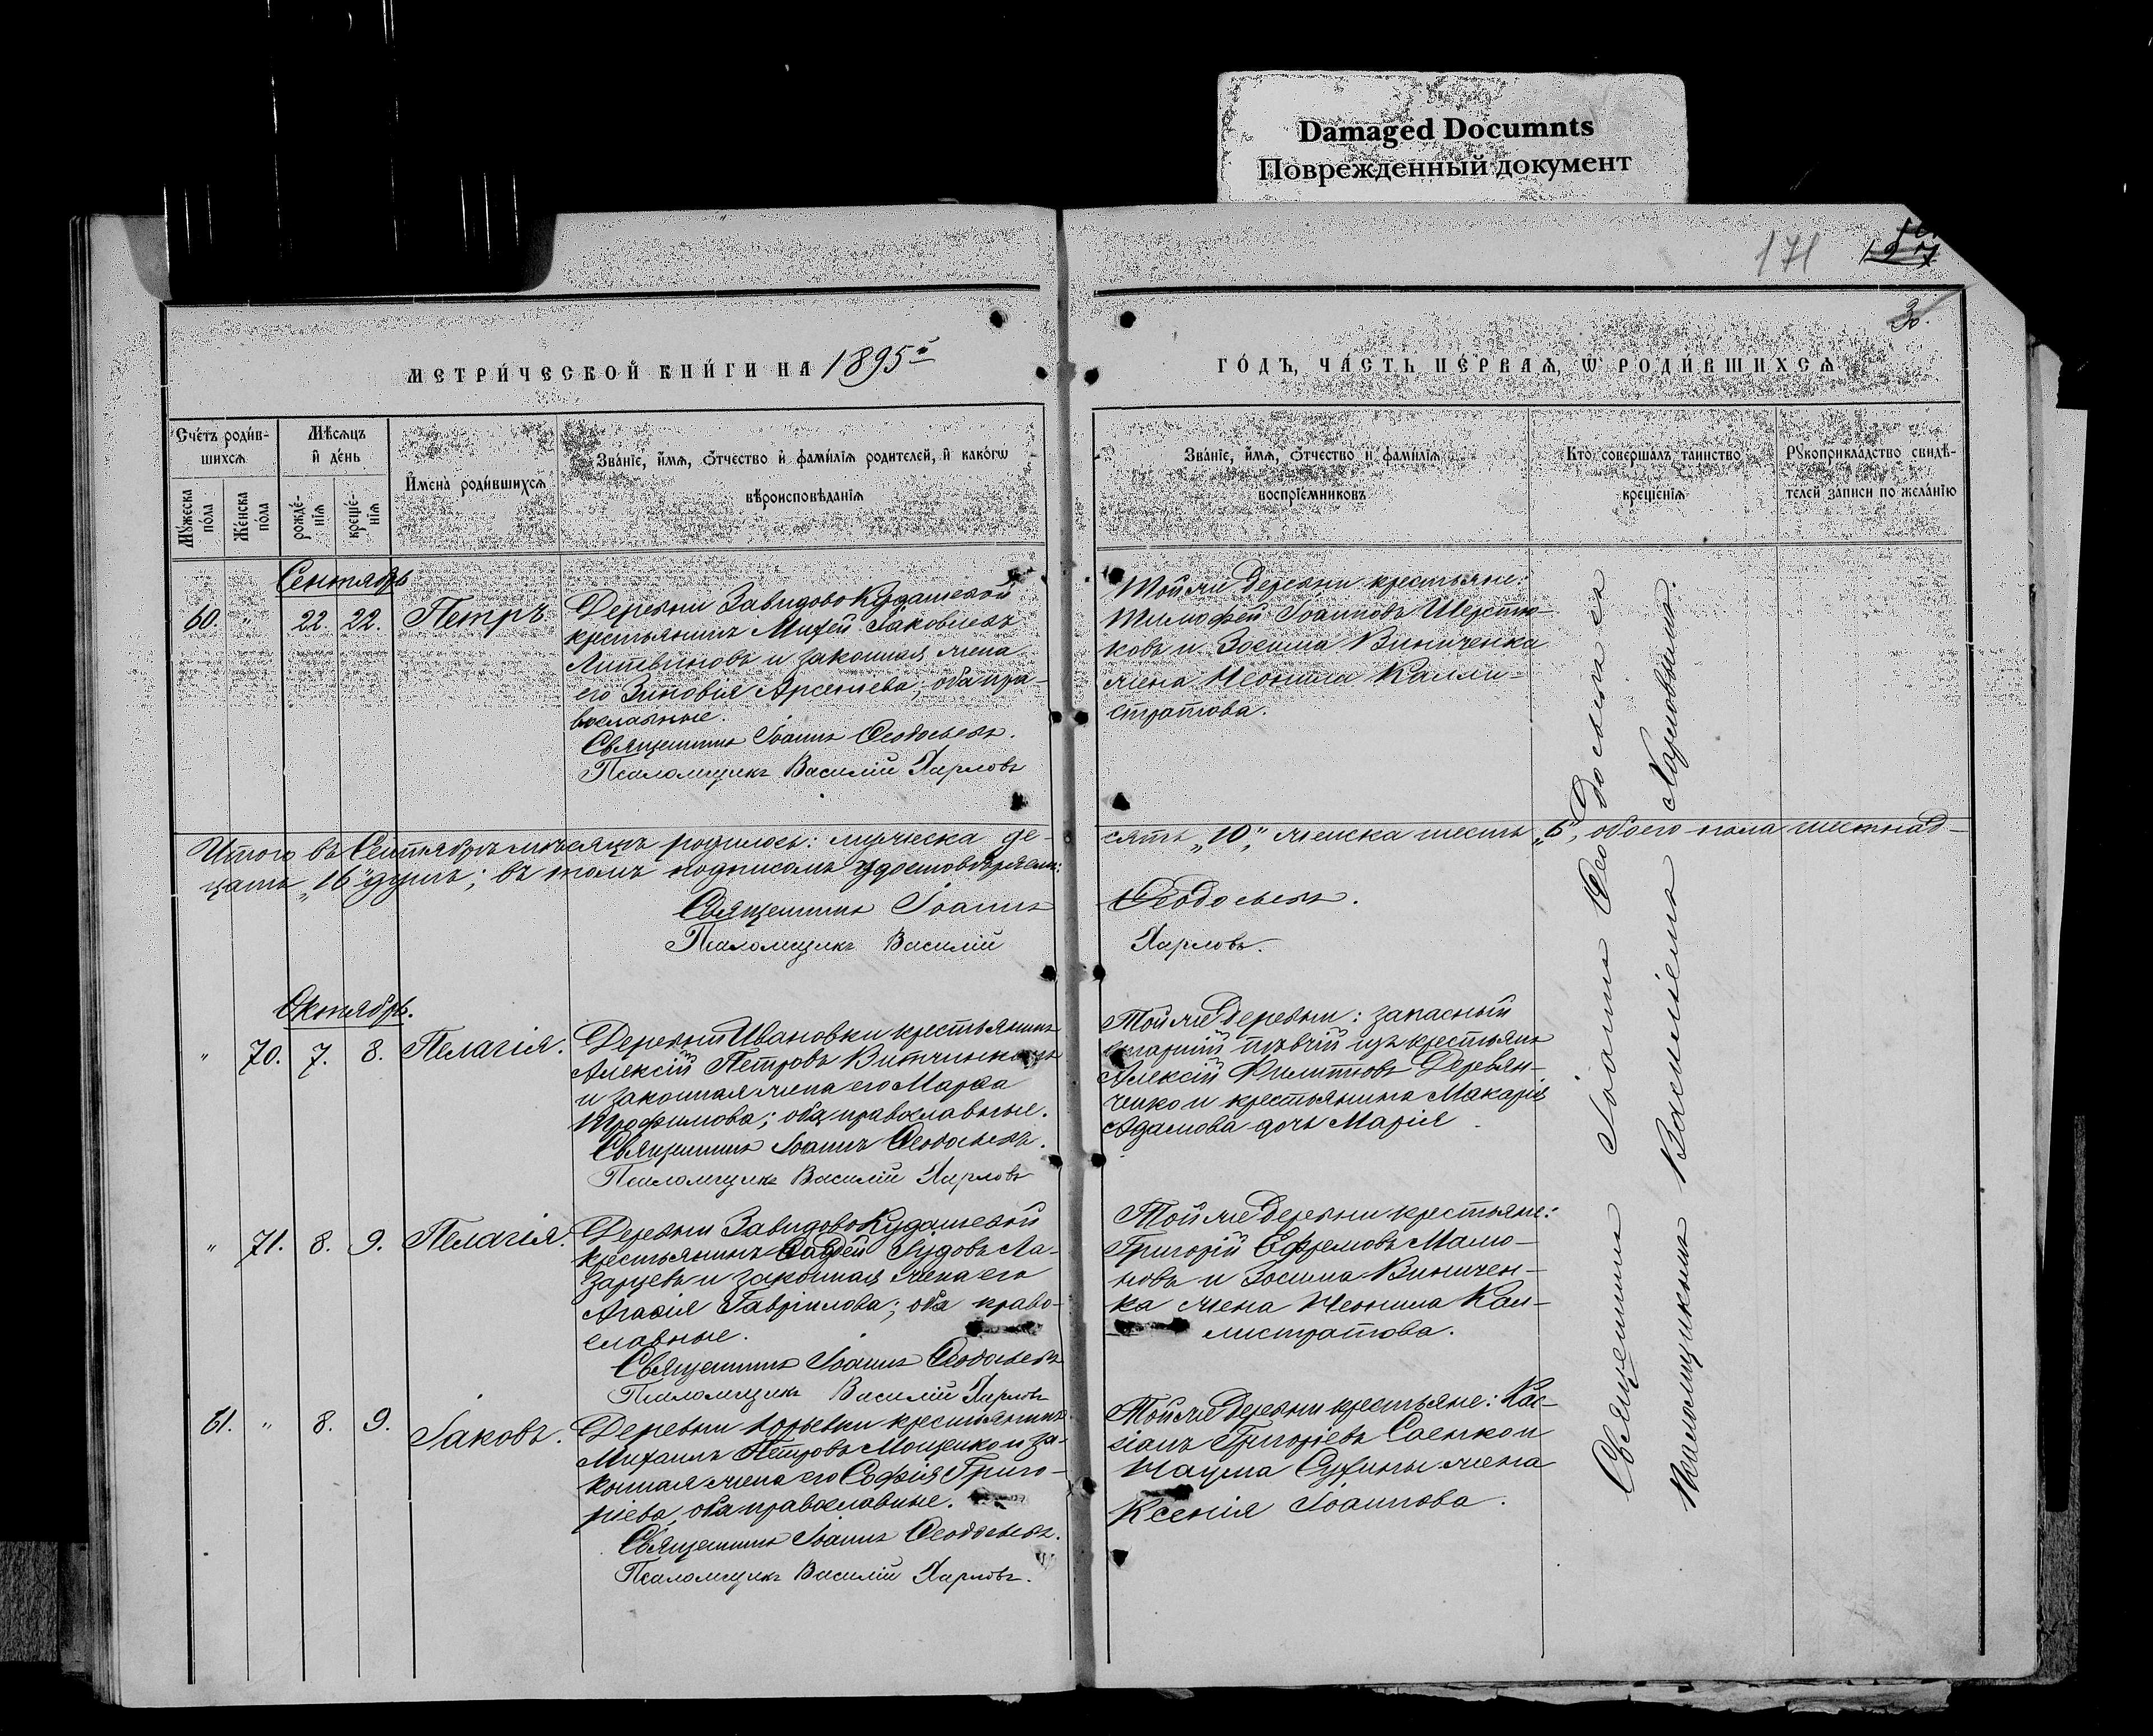 Damaged Documnts
Поврежденный документ
171
127
3
МЕТРИ́ЧЕСКОЙ КНИ́ГИ НА 1895й
ГО́ДЪ, ЧА́СТЬ ПЕ́РВАѦ, Ѡ РОДИ́ВШИХСѦ
Сче́тъ роди́в-
шихсѧ
Мѣ́сѧцъ
и҆ де́нь
Мꙋ́жеска
по́ла
Же́нска
по́ла
рожде́-
нїѧ
креще́-
нїѧ
И҆мена̀ роди́вшихсѧ
Зва́нїе, и҆́мѧ, ѻ҆́тчество и҆ фами́лїѧ роди́телей, и҆ како́гѡ
вѣроисповѣ́данїѧ
Зва́нїе, и҆́мѧ, ѻ҆́тчество и҆ фами́лїѧ
воспрїе́мниковъ
Кто̀ соверша́лъ та́инство
креще́нїѧ
Рꙋкоприкла́дство свидѣ́-
телей за́писи по жела́нїю
Сентябрь
60. " 22. 22. Петръ
Деревни Завидово Кудашевой
крестьянинъ Михей Іаковлевъ
Литвиновъ и законная жена
его Зиновія Арсеніева; оба пра-
вославные.
Священникъ Іоаннъ Ѳеодосьевъ.
Псаломщикъ Василій Харловъ
Той же деревни крестьяне:
Тимофей Іоанновъ Шерстю-
ковъ и Зосима Виниченка
жена Неонила Калли-
стратова.
Итого въ Сентябрѣ мѣсяцѣ родилось: мужеска де-
сять „10", женска шесть „6", обоего пола шестнад-
цать „16" душъ; въ томъ подписомъ удостовѣряемъ:
Священникъ Іоаннъ Ѳеодосьевъ.
Псаломщикъ Василій Харловъ.
Октябрь.
" 70. 7. 8. Пелагія.
Деревни Ивановки крестьянинъ
Алексій Петровъ
и законная жена его Марѳа
Трофимова; оба православные.
Священникъ Іоаннъ Ѳеодосьевъ.
Псаломщикъ Василій Харловъ
Той же деревни: запасный
старшій пѣвчій изъ крестьянъ
Алексій Филипповъ Деревян-
ченко и крестьянина Макарія
Адамова дочь Марія
" 71. 8. 9. Пелагія.
Деревни Завидово Кудашевой
крестьянинъ Іудовъ Ла-
зарцевъ и законная жена его
Агаѳія Гавріилова; оба право-
славные.
Священникъ Іоаннъ Ѳеодосьевъ
Псаломщикъ Василій Харловъ
Той же деревни крестьяне:
Григорій Ефремовъ Малю-
ковъ и Зосима Виничен-
ка жена Неонила Кал-
листратова.
61. " 8. 9. Іаковъ.
Деревни Юрьевки крестьянинъ
Михаилъ Петровъ Мощенко и за-
конная жена его Софія Григо-
ріева, оба православные.
Священникъ Іоаннъ Ѳеодосьевъ.
Псаломщикъ Василій Харловъ.
Той же деревни крестьяне: Кас-
сіанъ Григоріевъ Саенко и
Наума Сухины жена
Ксенія Іоаннова.
Священникъ Іоаннъ Ѳеодосьевъ съ
Псаломщикомъ Василіемъ Харловымъ.